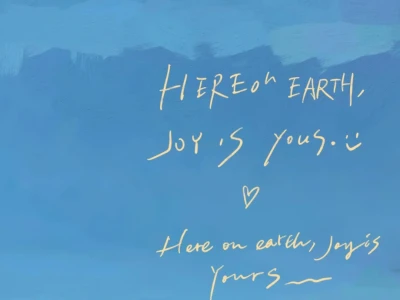 HERE on EARTH,
JOY is yous. :)
♡
Here on earth, Joy is
yours